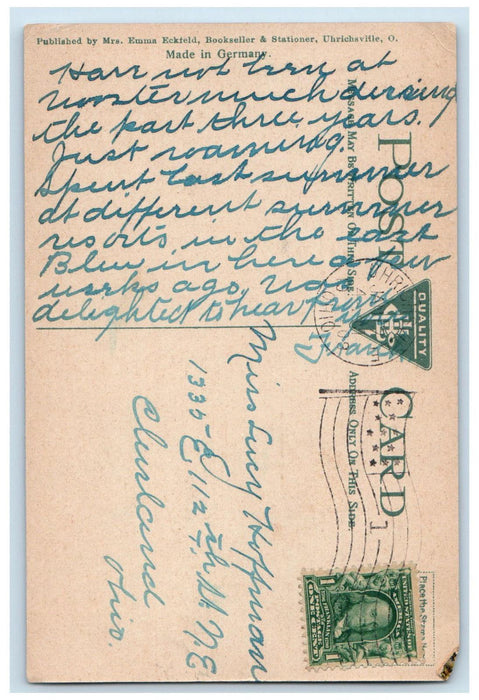 Published by Mrs. Emma Eckfeld, Bookseller & Stationer, Uhrichsville, O.
Made in Germany.
Have not been at
Wooster much during
the past three years.
Just roaming.
Spent last summer
at different summer
resorts in the east
Blew in here a few
weeks ago. Was
delighted to hear from
POST CARD
MESSAGE MAY BE WRITTEN ON THIS SIDE
ADDRESS ONLY ON THIS SIDE.
QUALITY
UHRI
OHIO
1
Miss Lucy Hoffman
1335 E 112th St. NE
Cleveland
Ohio.
Place the Stamp
UNITED STATES OF AMERICA
FRANKLIN
POSTAGE
1 ONE CENT 1